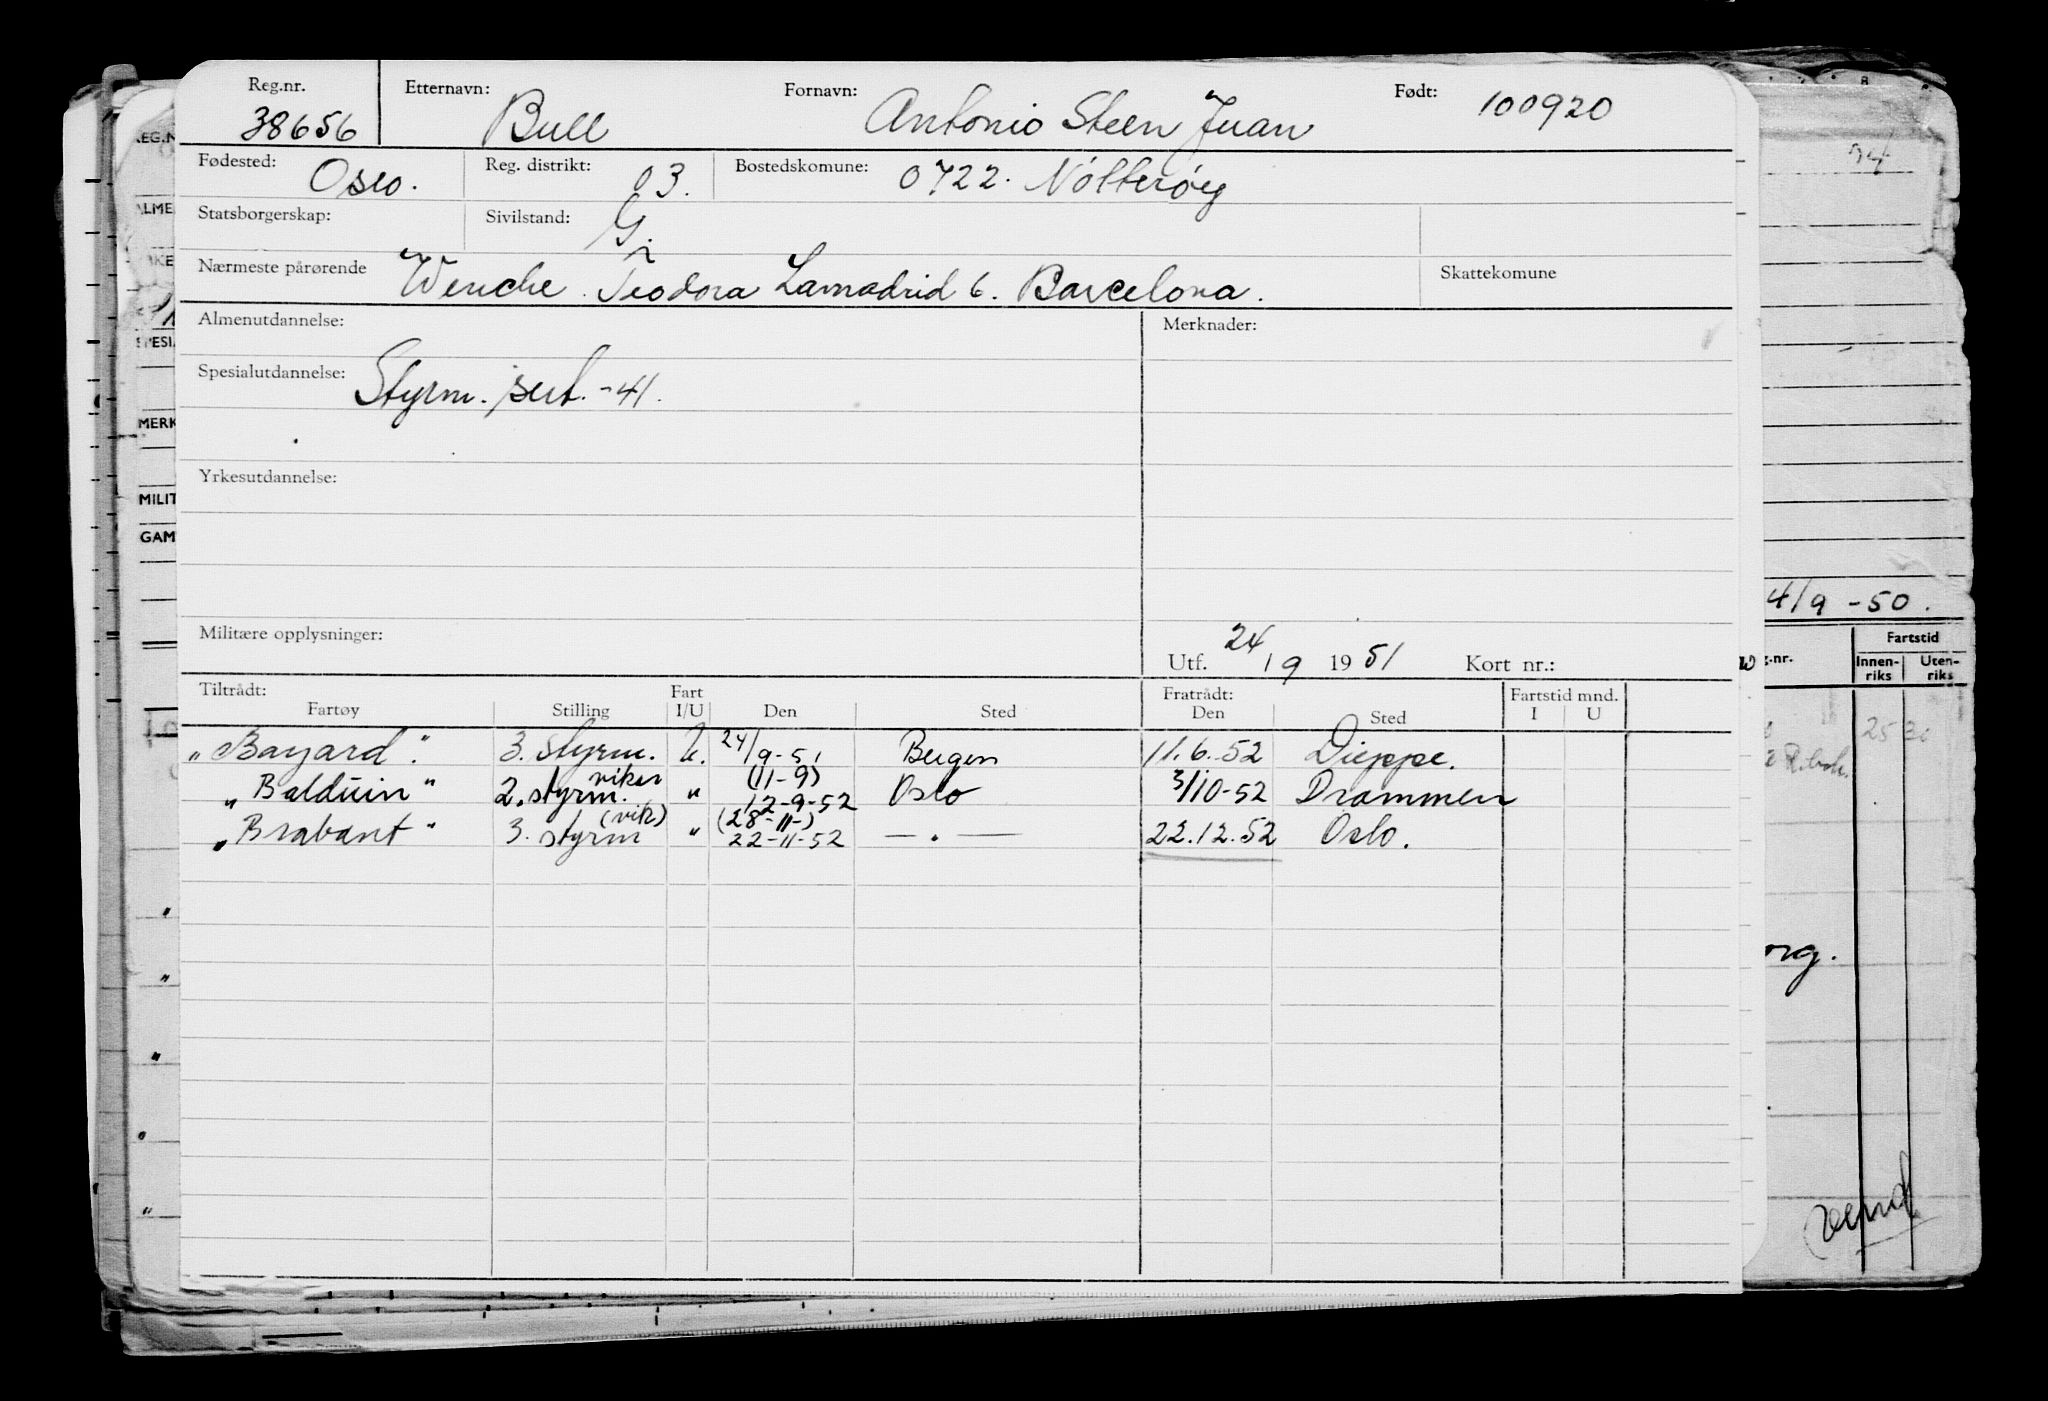 Reg.nr. 38656 Etternavn: Bull Fornavn: Antonio Steen Juan Født: 100920
Fødested: Oslo. Reg. distrikt: 03. Bostedskomune: 0722. Nøtterøy
Statsborgerskap: Sivilstand: G.
Nærmeste pårørende Wenche Teodora Lamadrid 6. Barcelona. Skattekomune
Almenutdannelse: Merknader:
Spesialutdannelse: Styrm. sert. -41.
Yrkesutdannelse:
Militære opplysninger: Utf. 24/9 1951 Kort nr.:
Tiltrådt: Fart Fratrådt: Fartstid mnd.
Fartøy Stilling I/U Den Sted Den Sted I U
"Bayard". 3. styrm. U. 24/9-51 Bergen 11.6.-52 Dieppe.
"Balduin" 2. styrm. viker " (11-9) 12-9-52 Oslo 3/10-52 Drammen
"Brabant" 3. styrm (vik) " (28-11-) 22-11-52 — " — 22.12.52 Oslo.
REG.N
ALME
SPESI
MERK
MILIT
GAM
4/9 -50.
g.nr. Fartstid
Innenriks Utenriks
org.